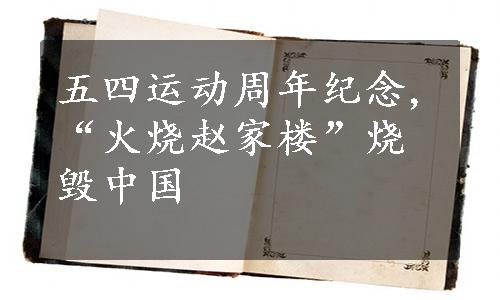 五四运动周年纪念，
“火烧赵家楼”烧
毁中国